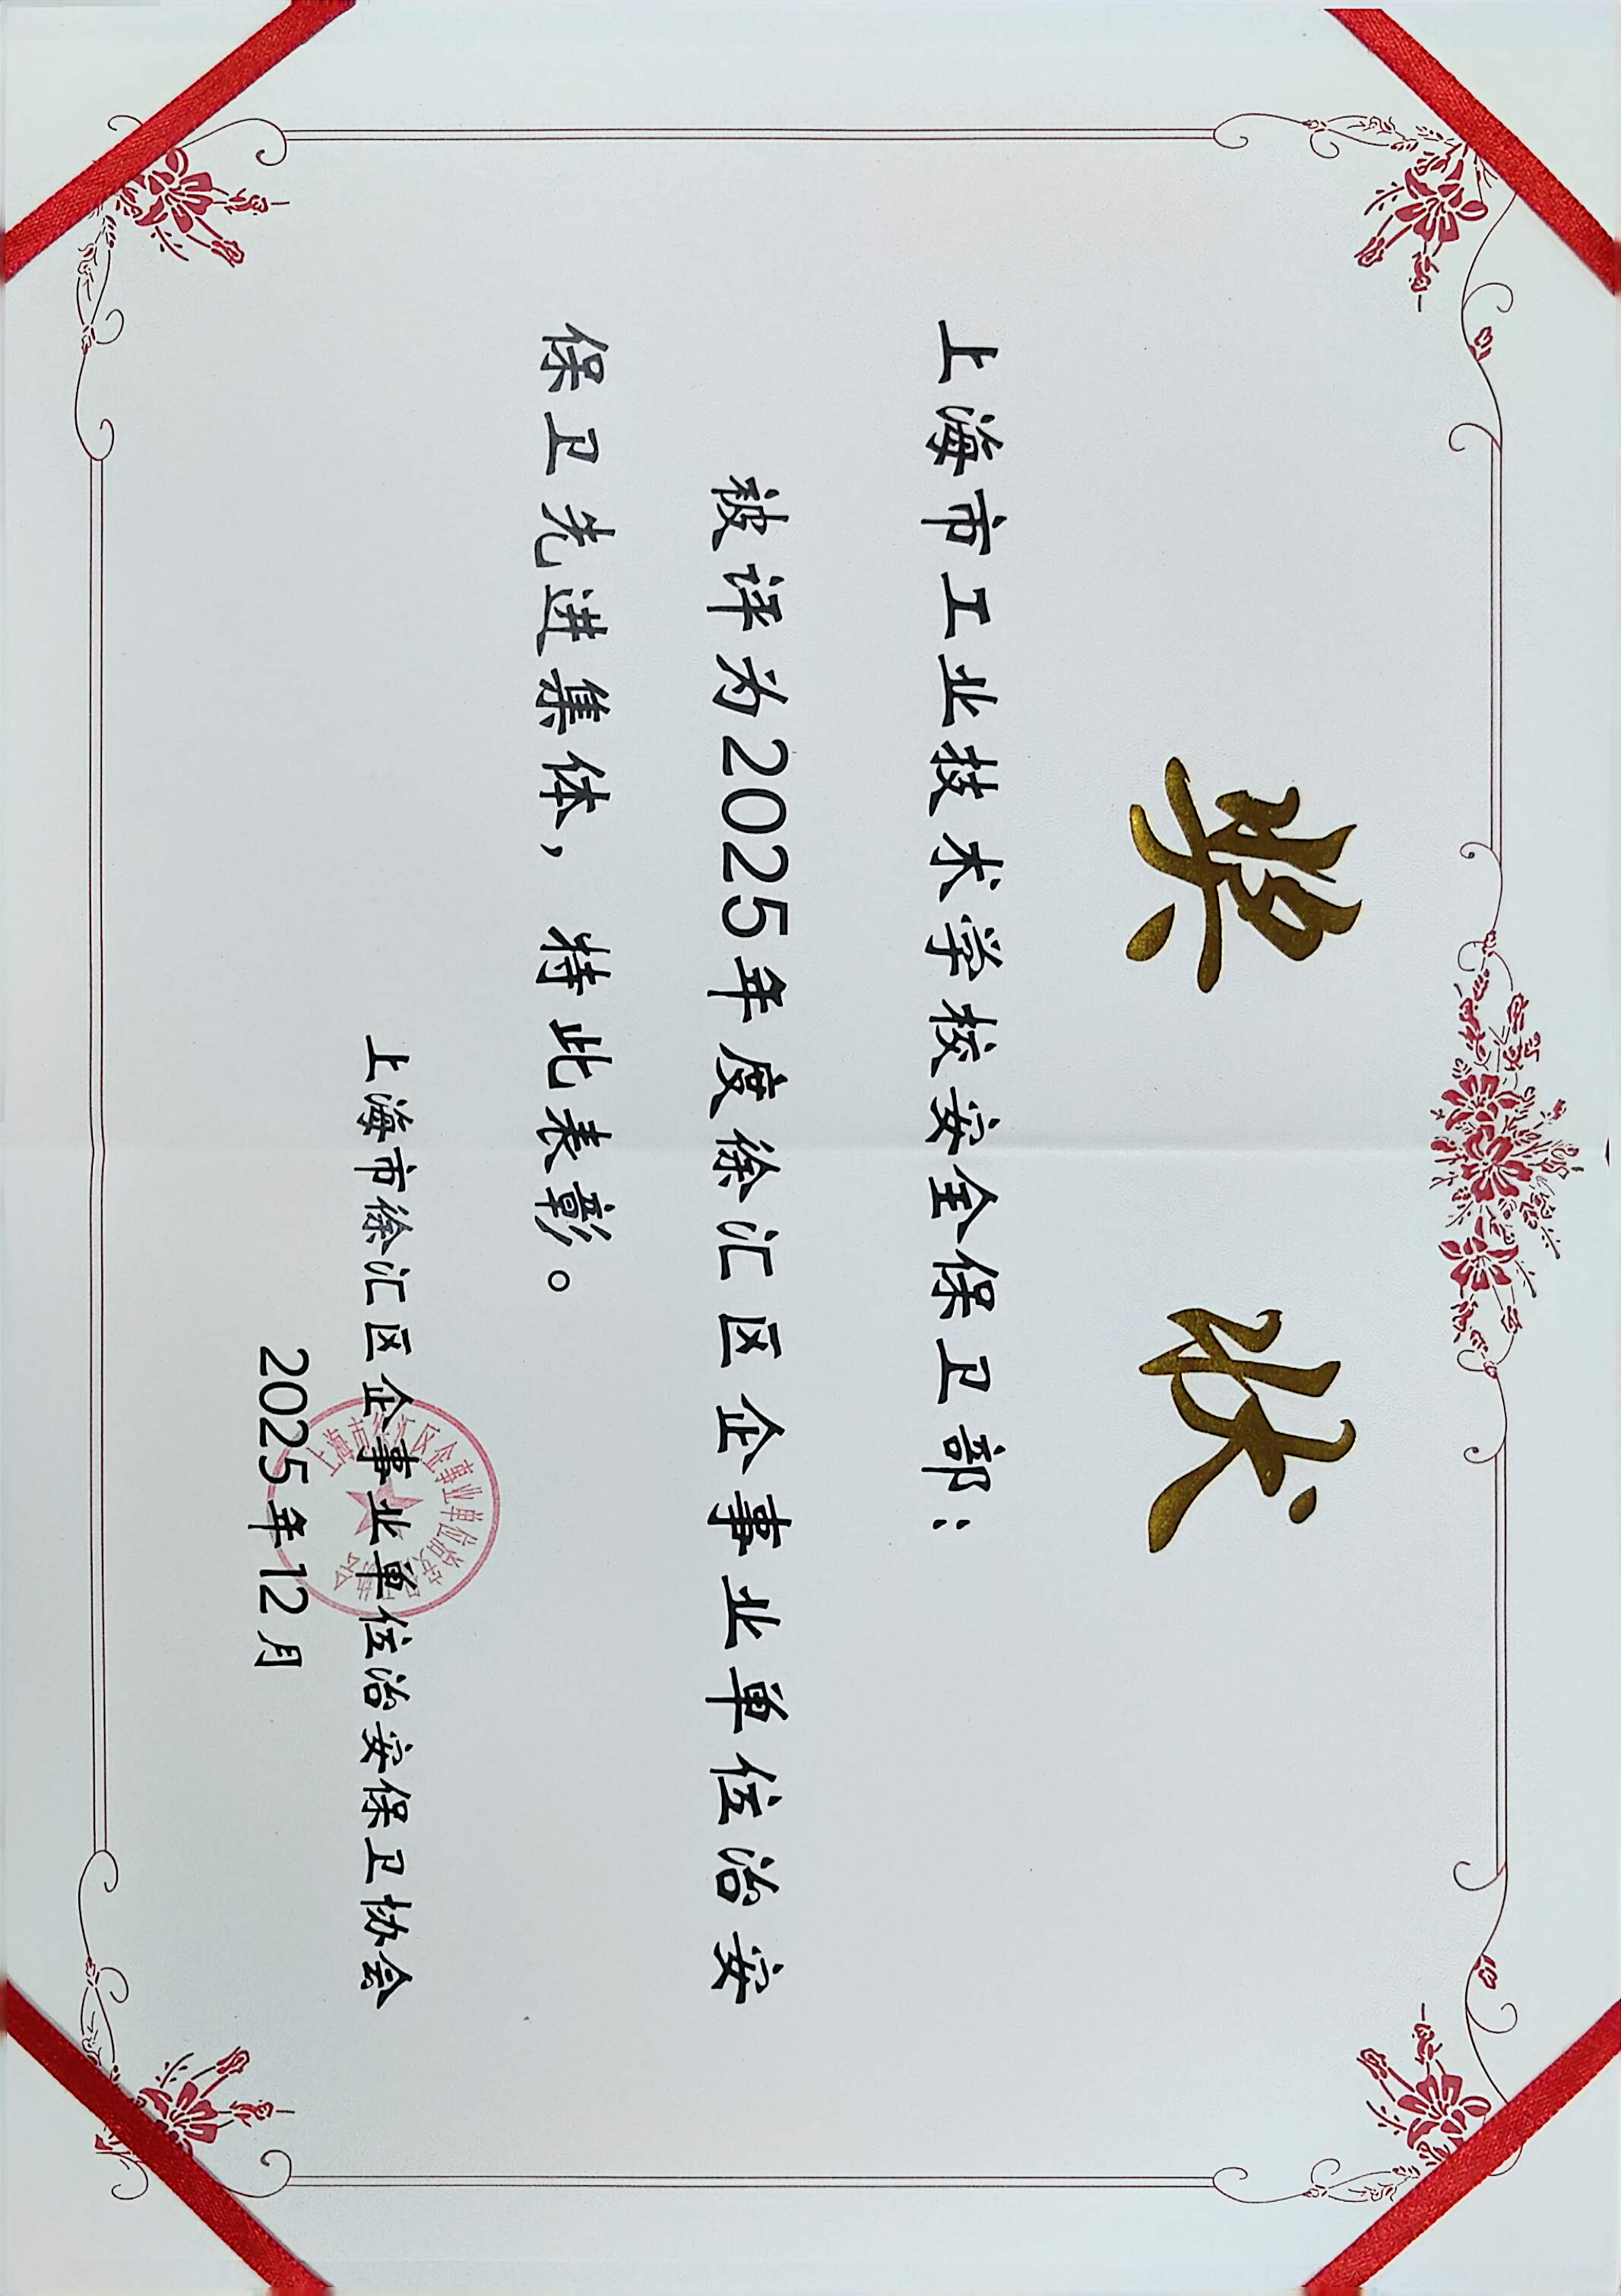 奖状
上海市工业技术学校安全保卫部：
被评为2025年度徐汇区企事业单位治安
保卫先进集体，特此表彰。
上海市徐汇区企事业单位治安保卫协会
2025年12月